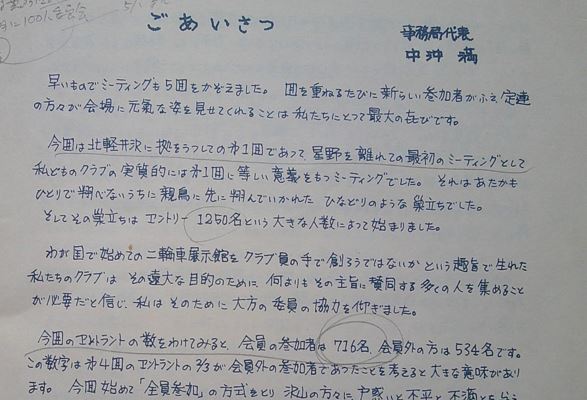 に100人委員会
ごあいさつ
事務局代表
中沖 満
早いものでミーティングも5回をかぞえました。 回を重ねるたびに新らしい参加者がふえ、定連
の方々が会場に元気な姿を見せてくれることは私たちにとって最大の在びです。
今回は北軽井沢に拠をうつしての才1回であって、星野を離れての最初のミーティングとして
私どものクラブの実質的には才1回に等しい意義をもつミーティングでした。 それはあたかも
ひとりで翔べないうちに親鳥に先に翔んでいかれた ひなどりのような 巣立ちでした。
そしてその巣立ちは エントリー 1250名という大きな人数によって始まりました。
わが国で始めての二輪車展示館を クラブ員の手で創ろうではないか という趣旨で生れた
私たちのクラブは その遠大な目的のために 何よりもその主旨に賛同する多くの人を集めること
が必要だと信じ、私は そのために 大方の委員の協力を仰ぎました。
今回のエントラントの数をわけてみると、会員の参加者は 716名、会員外の方は534名です。
この数字は才4回のエントラントの2/3が会員外の参加者であったことを考えると大きな意味があり
ます。 今回始めて「全員参加」の方式をとり 沢山の方々に 戸惑いと 不平と 不満と